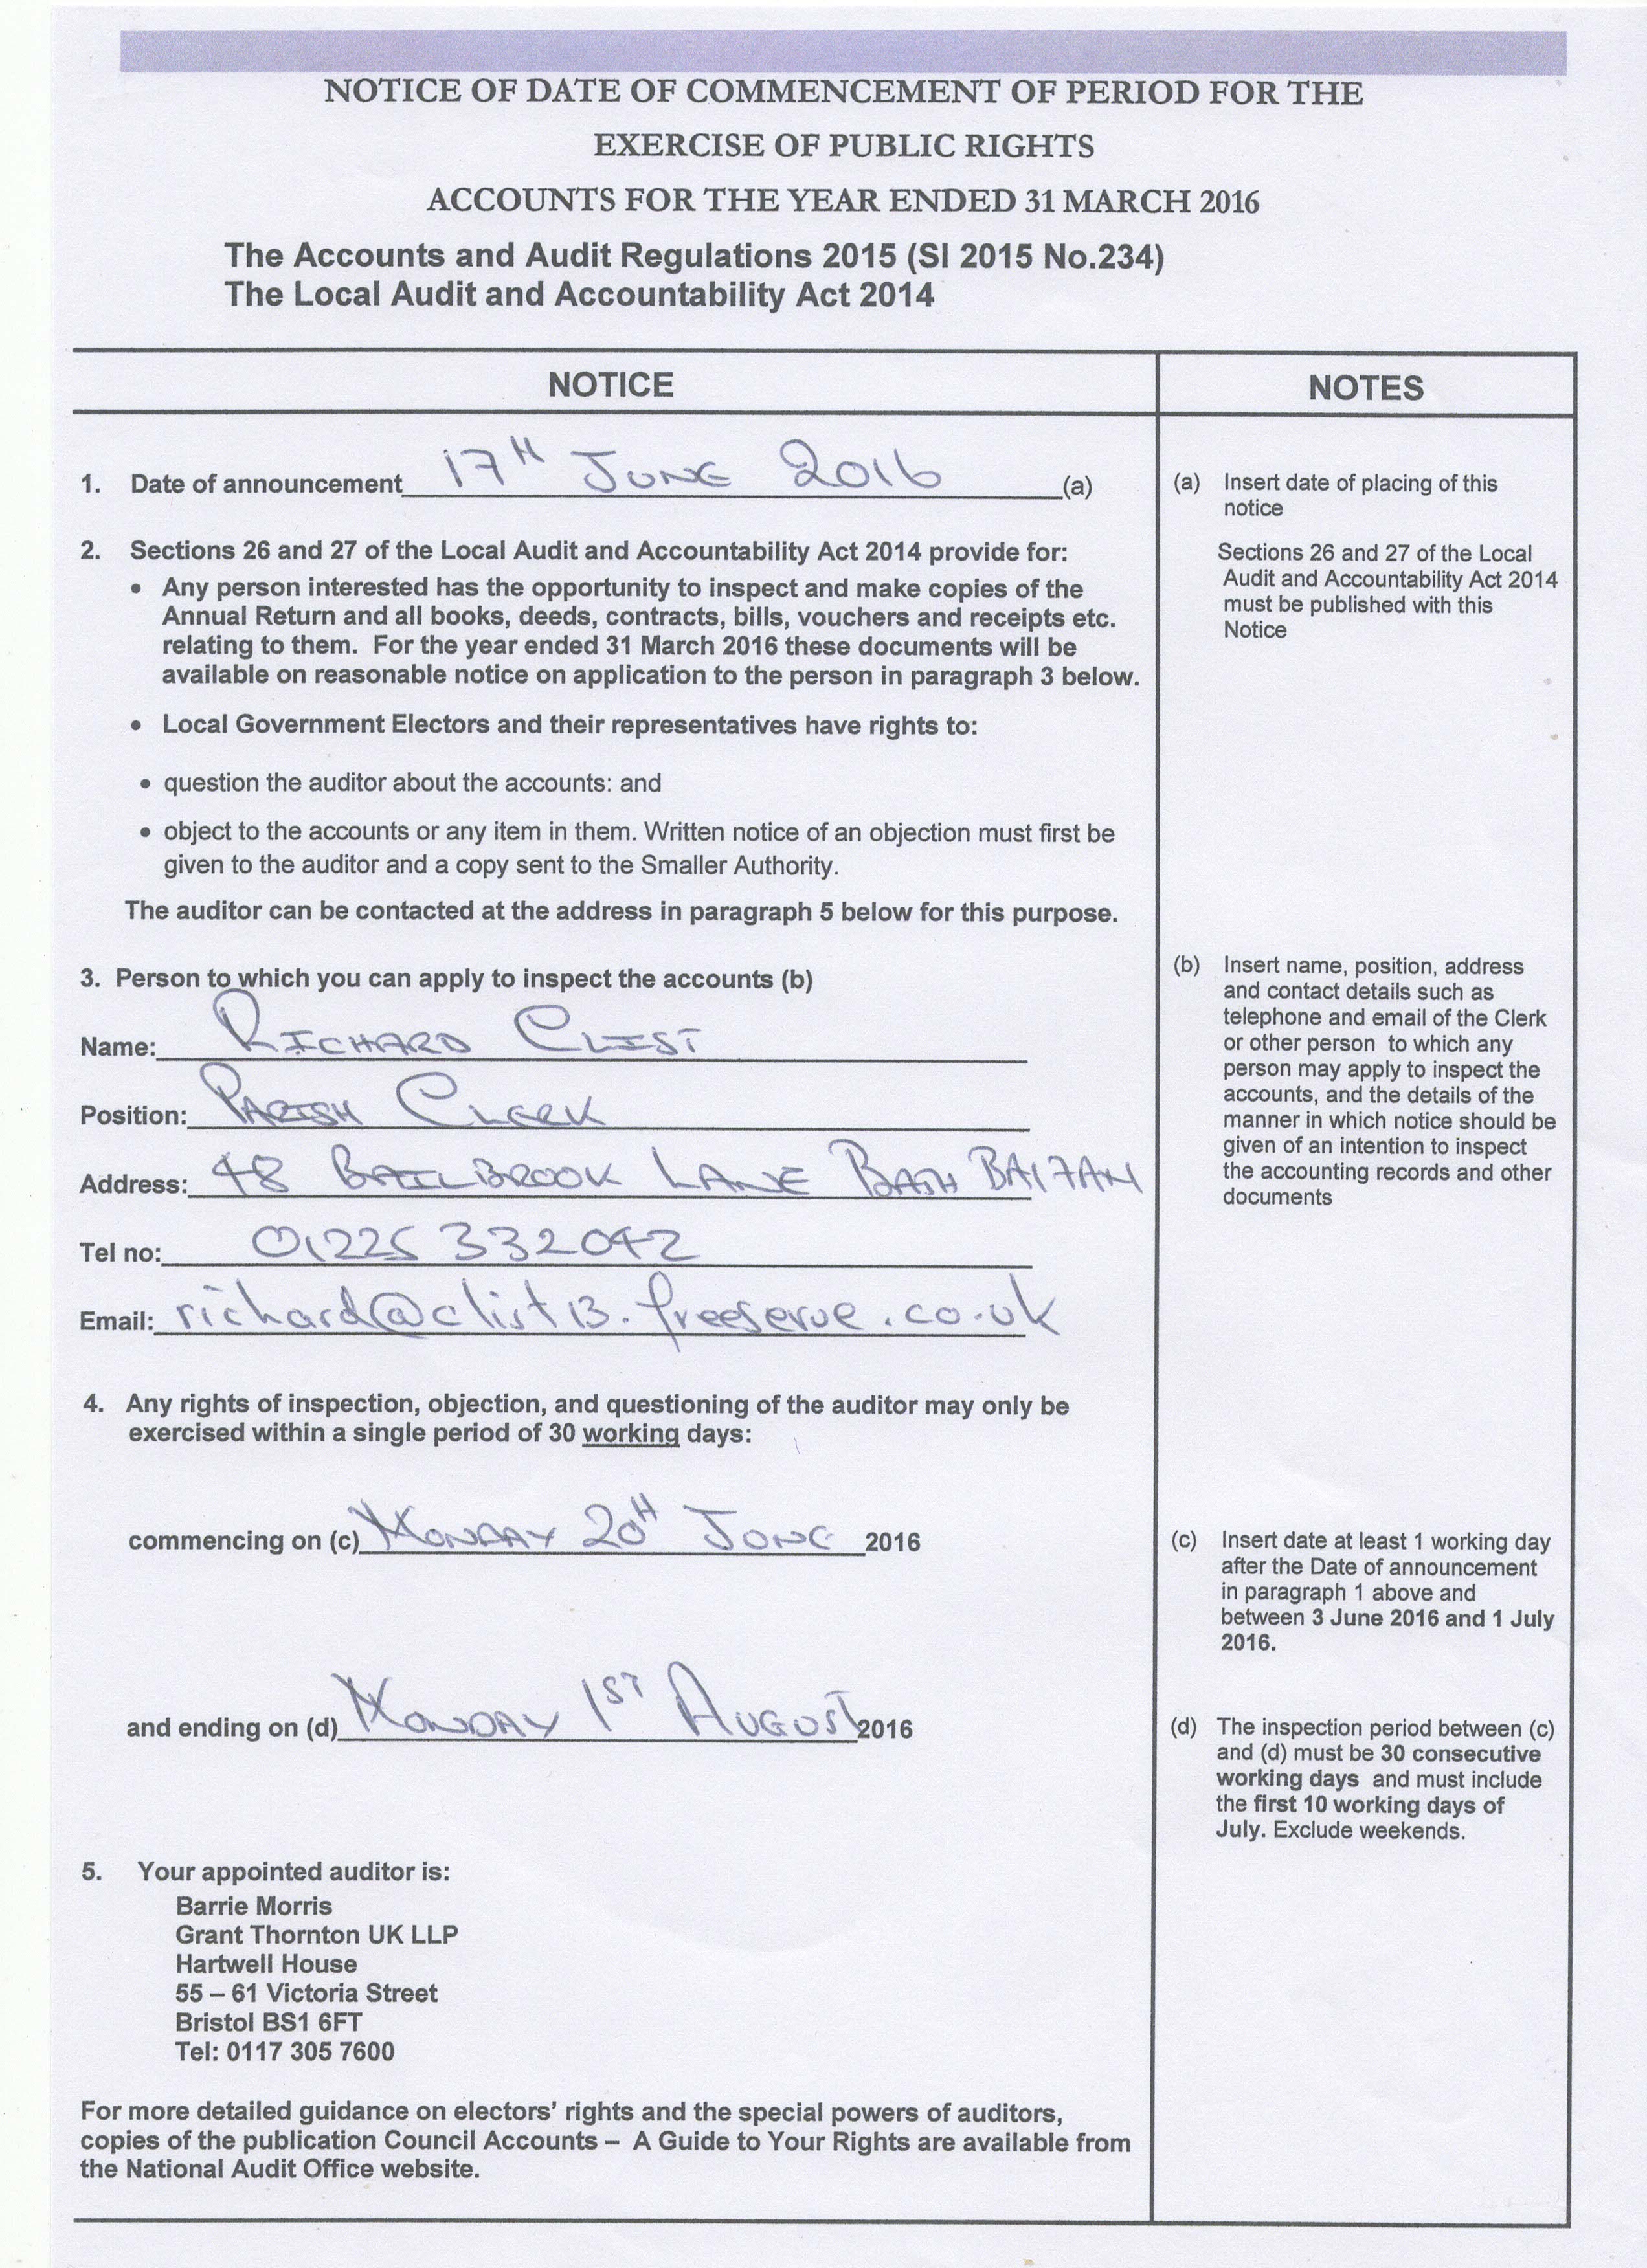 NOTICE OF DATE OF COMMENCEMENT OF PERIOD FOR THE
EXERCISE OF PUBLIC RIGHTS
ACCOUNTS FOR THE YEAR ENDED 31 MARCH 2016
The Accounts and Audit Regulations 2015 (SI 2015 No.234)
The Local Audit and Accountability Act 2014
NOTICE
1. Date of announcement 17TH JUNE 2016 (a)
2. Sections 26 and 27 of the Local Audit and Accountability Act 2014 provide for:
• Any person interested has the opportunity to inspect and make copies of the
Annual Return and all books, deeds, contracts, bills, vouchers and receipts etc.
relating to them. For the year ended 31 March 2016 these documents will be
available on reasonable notice on application to the person in paragraph 3 below.
• Local Government Electors and their representatives have rights to:
• question the auditor about the accounts: and
• object to the accounts or any item in them. Written notice of an objection must first be
given to the auditor and a copy sent to the Smaller Authority.
The auditor can be contacted at the address in paragraph 5 below for this purpose.
3. Person to which you can apply to inspect the accounts (b)
Name: RICHARD CLIST
Position: PARISH CLERK
Address: 48 BAILBROOK LANE BATH BA1 7AH
Tel no: 01225 332042
Email: richard@clist13.freeserve.co.uk
4. Any rights of inspection, objection, and questioning of the auditor may only be
exercised within a single period of 30 working days:
commencing on (c) MONDAY 20TH JUNE 2016
and ending on (d) MONDAY 1ST AUGUST 2016
5. Your appointed auditor is:
Barrie Morris
Grant Thornton UK LLP
Hartwell House
55 – 61 Victoria Street
Bristol BS1 6FT
Tel: 0117 305 7600
For more detailed guidance on electors' rights and the special powers of auditors,
copies of the publication Council Accounts – A Guide to Your Rights are available from
the National Audit Office website.
NOTES
(a) Insert date of placing of this
notice
Sections 26 and 27 of the Local
Audit and Accountability Act 2014
must be published with this
Notice
(b) Insert name, position, address
and contact details such as
telephone and email of the Clerk
or other person to which any
person may apply to inspect the
accounts, and the details of the
manner in which notice should be
given of an intention to inspect
the accounting records and other
documents
(c) Insert date at least 1 working day
after the Date of announcement
in paragraph 1 above and
between 3 June 2016 and 1 July
2016.
(d) The inspection period between (c)
and (d) must be 30 consecutive
working days and must include
the first 10 working days of
July. Exclude weekends.